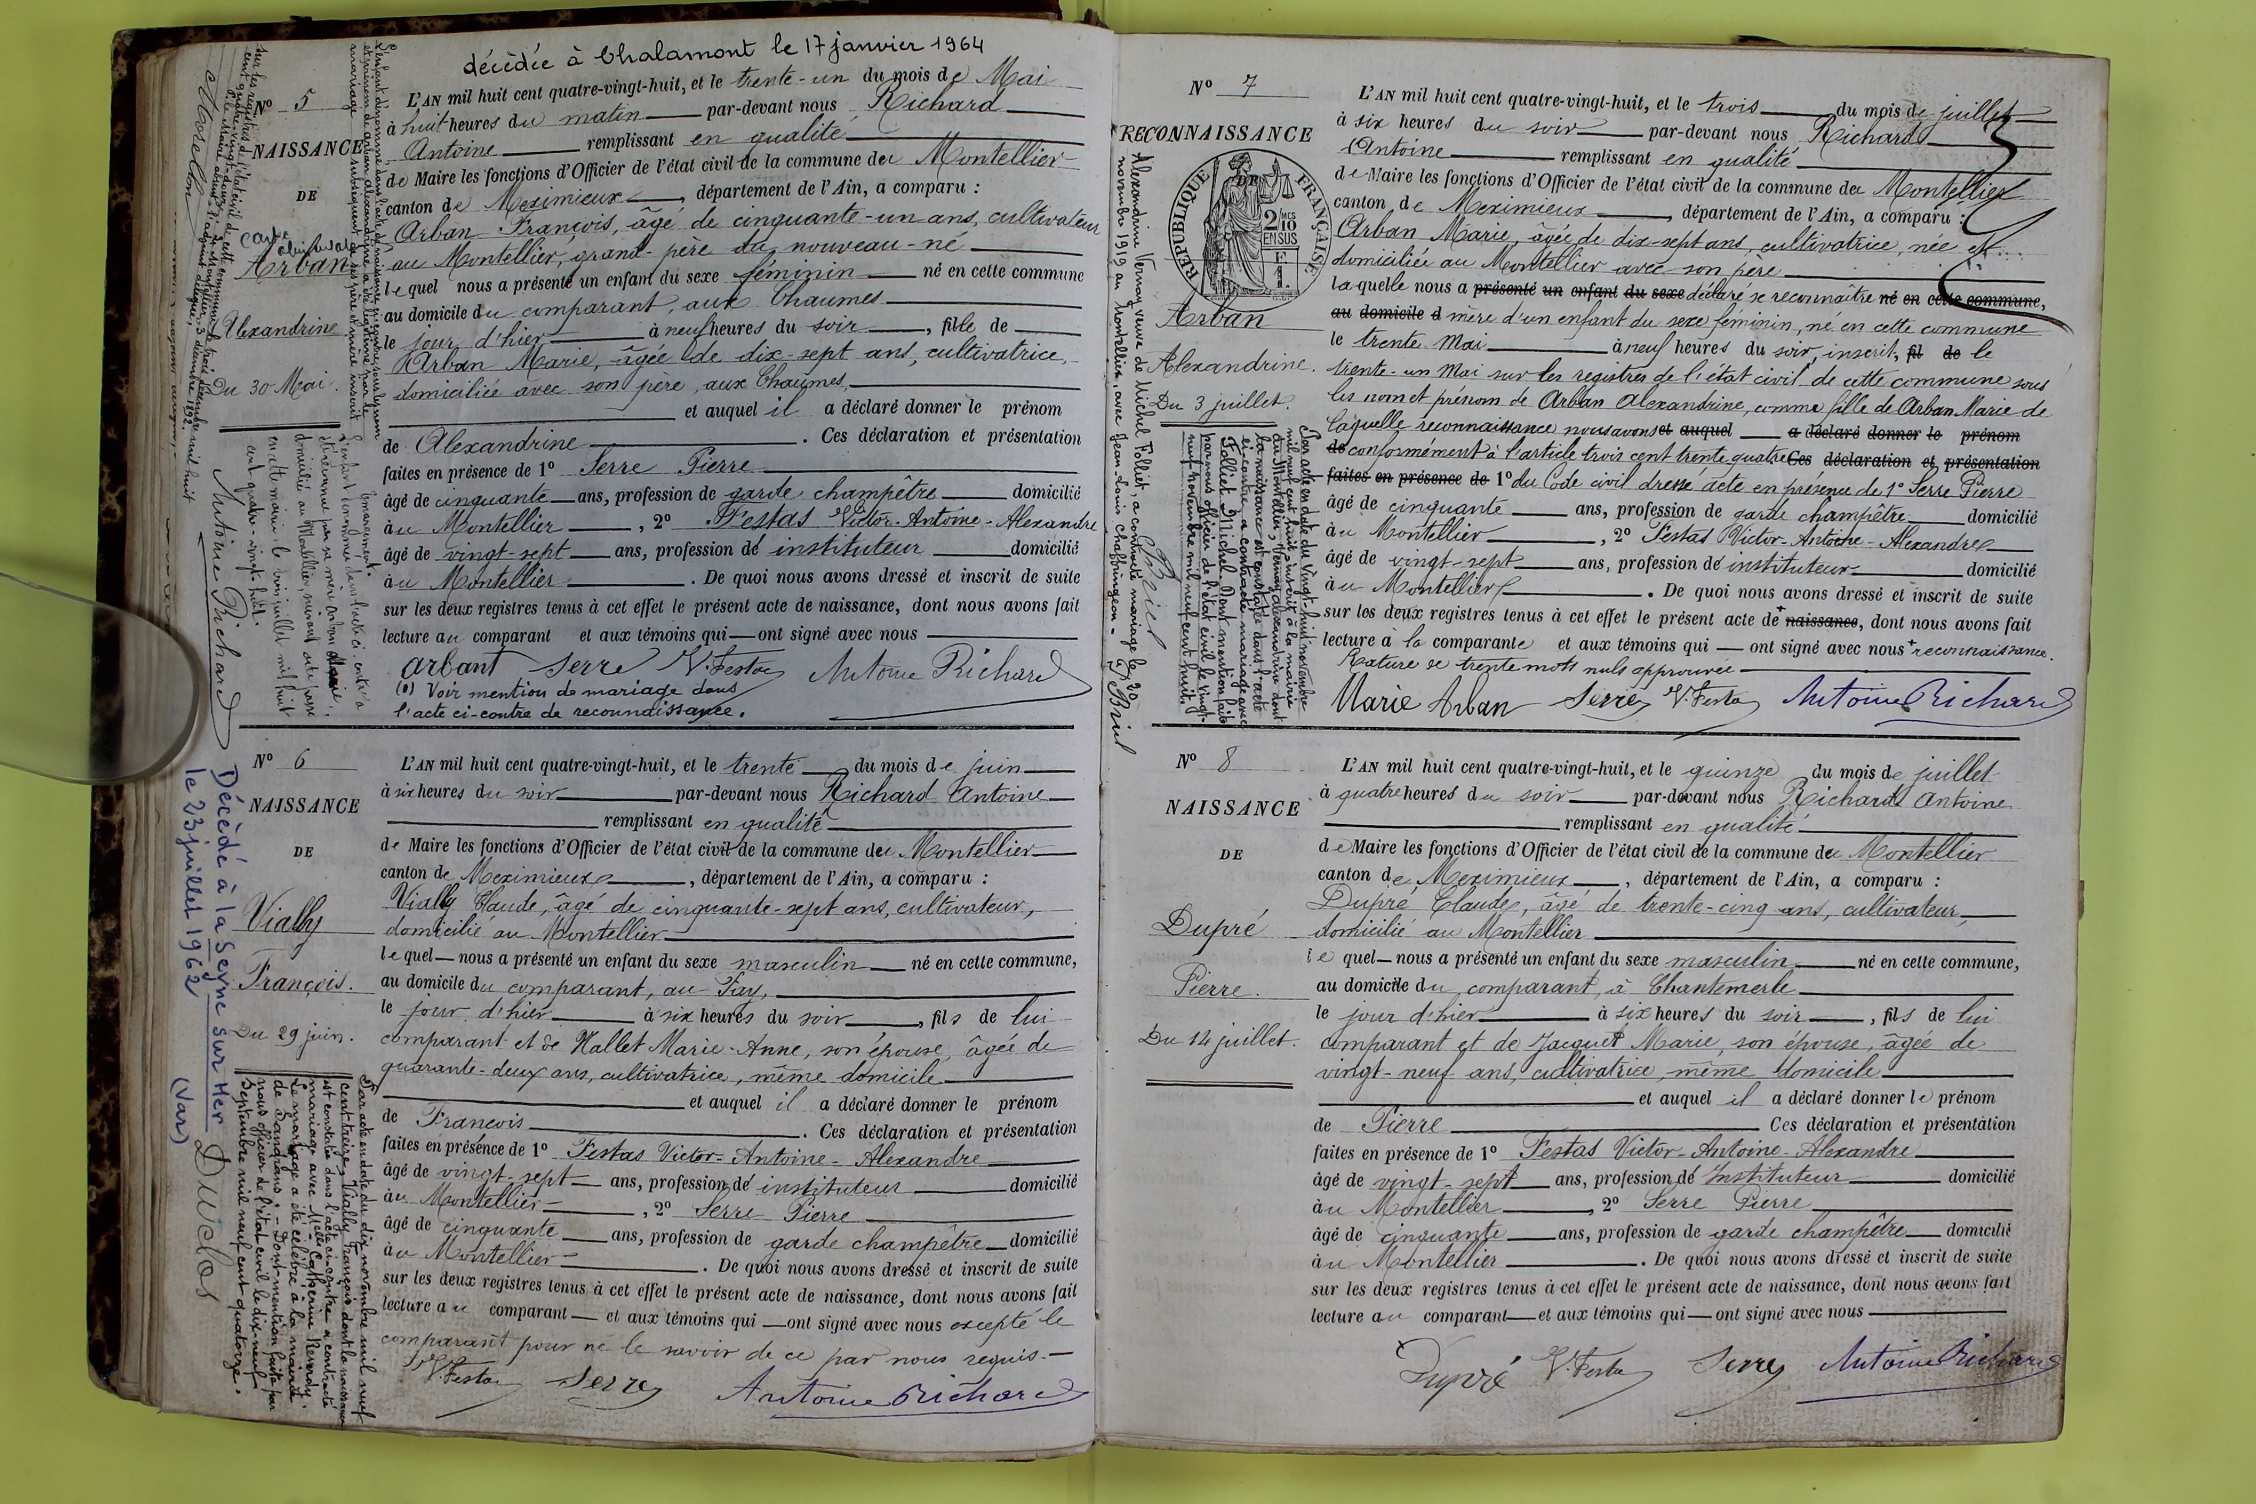 décédée à Chalamont le 17 janvier 1964
N° 5
NAISSANCE
DE
Arban
Alexandrine
Du 30 Mai.
L'AN mil huit cent quatre-vingt-huit, et le trente-un du mois de Mai
à huit heures du matin par-devant nous Richard
Antoine remplissant en qualité
de Maire les fonctions d'Officier de l'état civil de la commune du Montellier
canton de Meximieux, département de l'Ain, a comparu :
Arban François, âgé de cinquante-un ans, cultivateur
au Montellier, grand-père du nouveau-né
lequel nous a présenté un enfant du sexe féminin né en cette commune
au domicile du comparant, aux Chaumes
le jour d'hier à neuf heures du soir, fille de
Arban Marie, âgée de dix-sept ans, cultivatrice,
domiciliée avec son père, aux Chaumes,
et auquel il a déclaré donner le prénom
de Alexandrine. Ces déclaration et présentation
faites en présence de 1° Serre Pierre
âgé de cinquante ans, profession de garde champêtre domicilié
au Montellier, 2° Festas Victor-Antoine-Alexandre
âgé de vingt-sept ans, profession de instituteur domicilié
au Montellier. De quoi nous avons dressé et inscrit de suite
sur les deux registres tenus à cet effet le présent acte de naissance, dont nous avons fait
lecture au comparant et aux témoins qui ont signé avec nous
Arbant Serre V. Festas Antoine Richard
(1) Voir mention de mariage dans
l'acte ci-contre de reconnaissance.
Antoine Richard
N° 6
NAISSANCE
DE
Vially
François.
Du 29 juin.
L'AN mil huit cent quatre-vingt-huit, et le trente du mois de juin
à six heures du soir par-devant nous Richard Antoine
remplissant en qualité
de Maire les fonctions d'Officier de l'état civil de la commune du Montellier
canton de Meximieux, département de l'Ain, a comparu :
Vially Claude, âgé de cinquante-sept ans, cultivateur,
domicilié au Montellier
lequel nous a présenté un enfant du sexe masculin né en cette commune,
au domicile du comparant, au Fay,
le jour d'hier à six heures du soir, fils de lui
comparant et de Hallet Marie-Anne, son épouse, âgée de
quarante-deux ans, cultivatrice, même domicile
et auquel il a déclaré donner le prénom
de François. Ces déclaration et présentation
faites en présence de 1° Festas Victor-Antoine-Alexandre
âgé de vingt-sept ans, profession de instituteur domicilié
au Montellier, 2° Serre Pierre
âgé de cinquante ans, profession de garde champêtre domicilié
au Montellier. De quoi nous avons dressé et inscrit de suite
sur les deux registres tenus à cet effet le présent acte de naissance, dont nous avons fait
lecture au comparant et aux témoins qui ont signé avec nous excepté le
comparant pour ne le savoir de ce par nous requis.
V. Festas Serre Antoine Richard
Décédé à la Seyne sur Mer
le 23 juillet 1962 (Var)
Duclos
Par acte en date du dix novembre mil neuf
cent treize, Vially François dont la naissance
est constatée dans l'acte ci-contre a contracté
mariage avec Melle Catherine
Le mariage a été célébré à la mairie
de Sandrans. Dont mention faite par
nous officier de l'état civil le dix-neuf
Septembre mil neuf cent quatorze.
N° 7
RECONNAISSANCE
DE
RÉPUBLIQUE FRANÇAISE
2 10 MES EN SUS
F 1
Arban
Alexandrine.
Du 3 juillet.
L'AN mil huit cent quatre-vingt-huit, et le trois du mois de juillet
à six heures du soir par-devant nous Richard
Antoine remplissant en qualité
de Maire les fonctions d'Officier de l'état civil de la commune du Montellier
canton de Meximieux, département de l'Ain, a comparu :
Arban Marie, âgée de dix-sept ans, cultivatrice, née et
domiciliée au Montellier avec son père
laquelle nous a présenté un enfant du sexe déclaré se reconnaître né en cette commune,
au domicile d mère d'un enfant du sexe féminin, né en cette commune
le trente Mai à neuf heures du soir, inscrit, fil de le
trente-un Mai sur les registres de l'état civil de cette commune sous
les nom et prénom de Arban Alexandrine, comme fille de Arban Marie de
laquelle reconnaissance nous avons et auquel a déclaré donner le prénom
de conformément à l'article trois cent trente quatre Ces déclaration et présentation
faites en présence de 1° du Code civil dressé acte en présence de 1° Serre Pierre
âgé de cinquante ans, profession de garde champêtre domicilié
au Montellier, 2° Festas Victor-Antoine-Alexandre
âgé de vingt-sept ans, profession de instituteur domicilié
au Montellier. De quoi nous avons dressé et inscrit de suite
sur les deux registres tenus à cet effet le présent acte de + naissance, dont nous avons fait
lecture à la comparante et aux témoins qui ont signé avec nous + reconnaissance.
Rature de trente mots nuls approuvée
Marie Arban Serre V. Festas Antoine Richard
Alexandrine Vernay veuve de Michel Follet, a contracté mariage le 20
novembre 1919 au Montellier, avec Jean Louis
Par acte en date du vingt-huit novembre
mil neuf cent huit inscrit à la mairie
du Montellier, Vernay Alexandrine dont
la naissance est constatée dans l'acte
ci-contre a contracté mariage avec
Follet Michel. Dont mention faite
par nous officier de l'état civil le vingt-
neuf novembre mil neuf cent huit.
N° 8
NAISSANCE
DE
Dupré
Pierre.
Du 14 juillet.
L'AN mil huit cent quatre-vingt-huit, et le quinze du mois de juillet
à quatre heures du soir par-devant nous Richard Antoine
remplissant en qualité
de Maire les fonctions d'Officier de l'état civil de la commune du Montellier
canton de Meximieux, département de l'Ain, a comparu :
Dupré Claude, âgé de trente-cinq ans, cultivateur,
domicilié au Montellier
lequel nous a présenté un enfant du sexe masculin né en cette commune,
au domicile du comparant, à Chantemerle
le jour d'hier à six heures du soir, fils de lui
comparant et de Jacquet Marie, son épouse, âgée de
vingt-neuf ans, cultivatrice, même domicile
et auquel il a déclaré donner le prénom
de Pierre Ces déclaration et présentation
faites en présence de 1° Festas Victor-Antoine-Alexandre
âgé de vingt-sept ans, profession de Instituteur domicilié
au Montellier, 2° Serre Pierre
âgé de cinquante ans, profession de garde champêtre domicilié
au Montellier. De quoi nous avons dressé et inscrit de suite
sur les deux registres tenus à cet effet le présent acte de naissance, dont nous avons fait
lecture au comparant et aux témoins qui ont signé avec nous
Dupré V. Festas Serre Antoine Richard